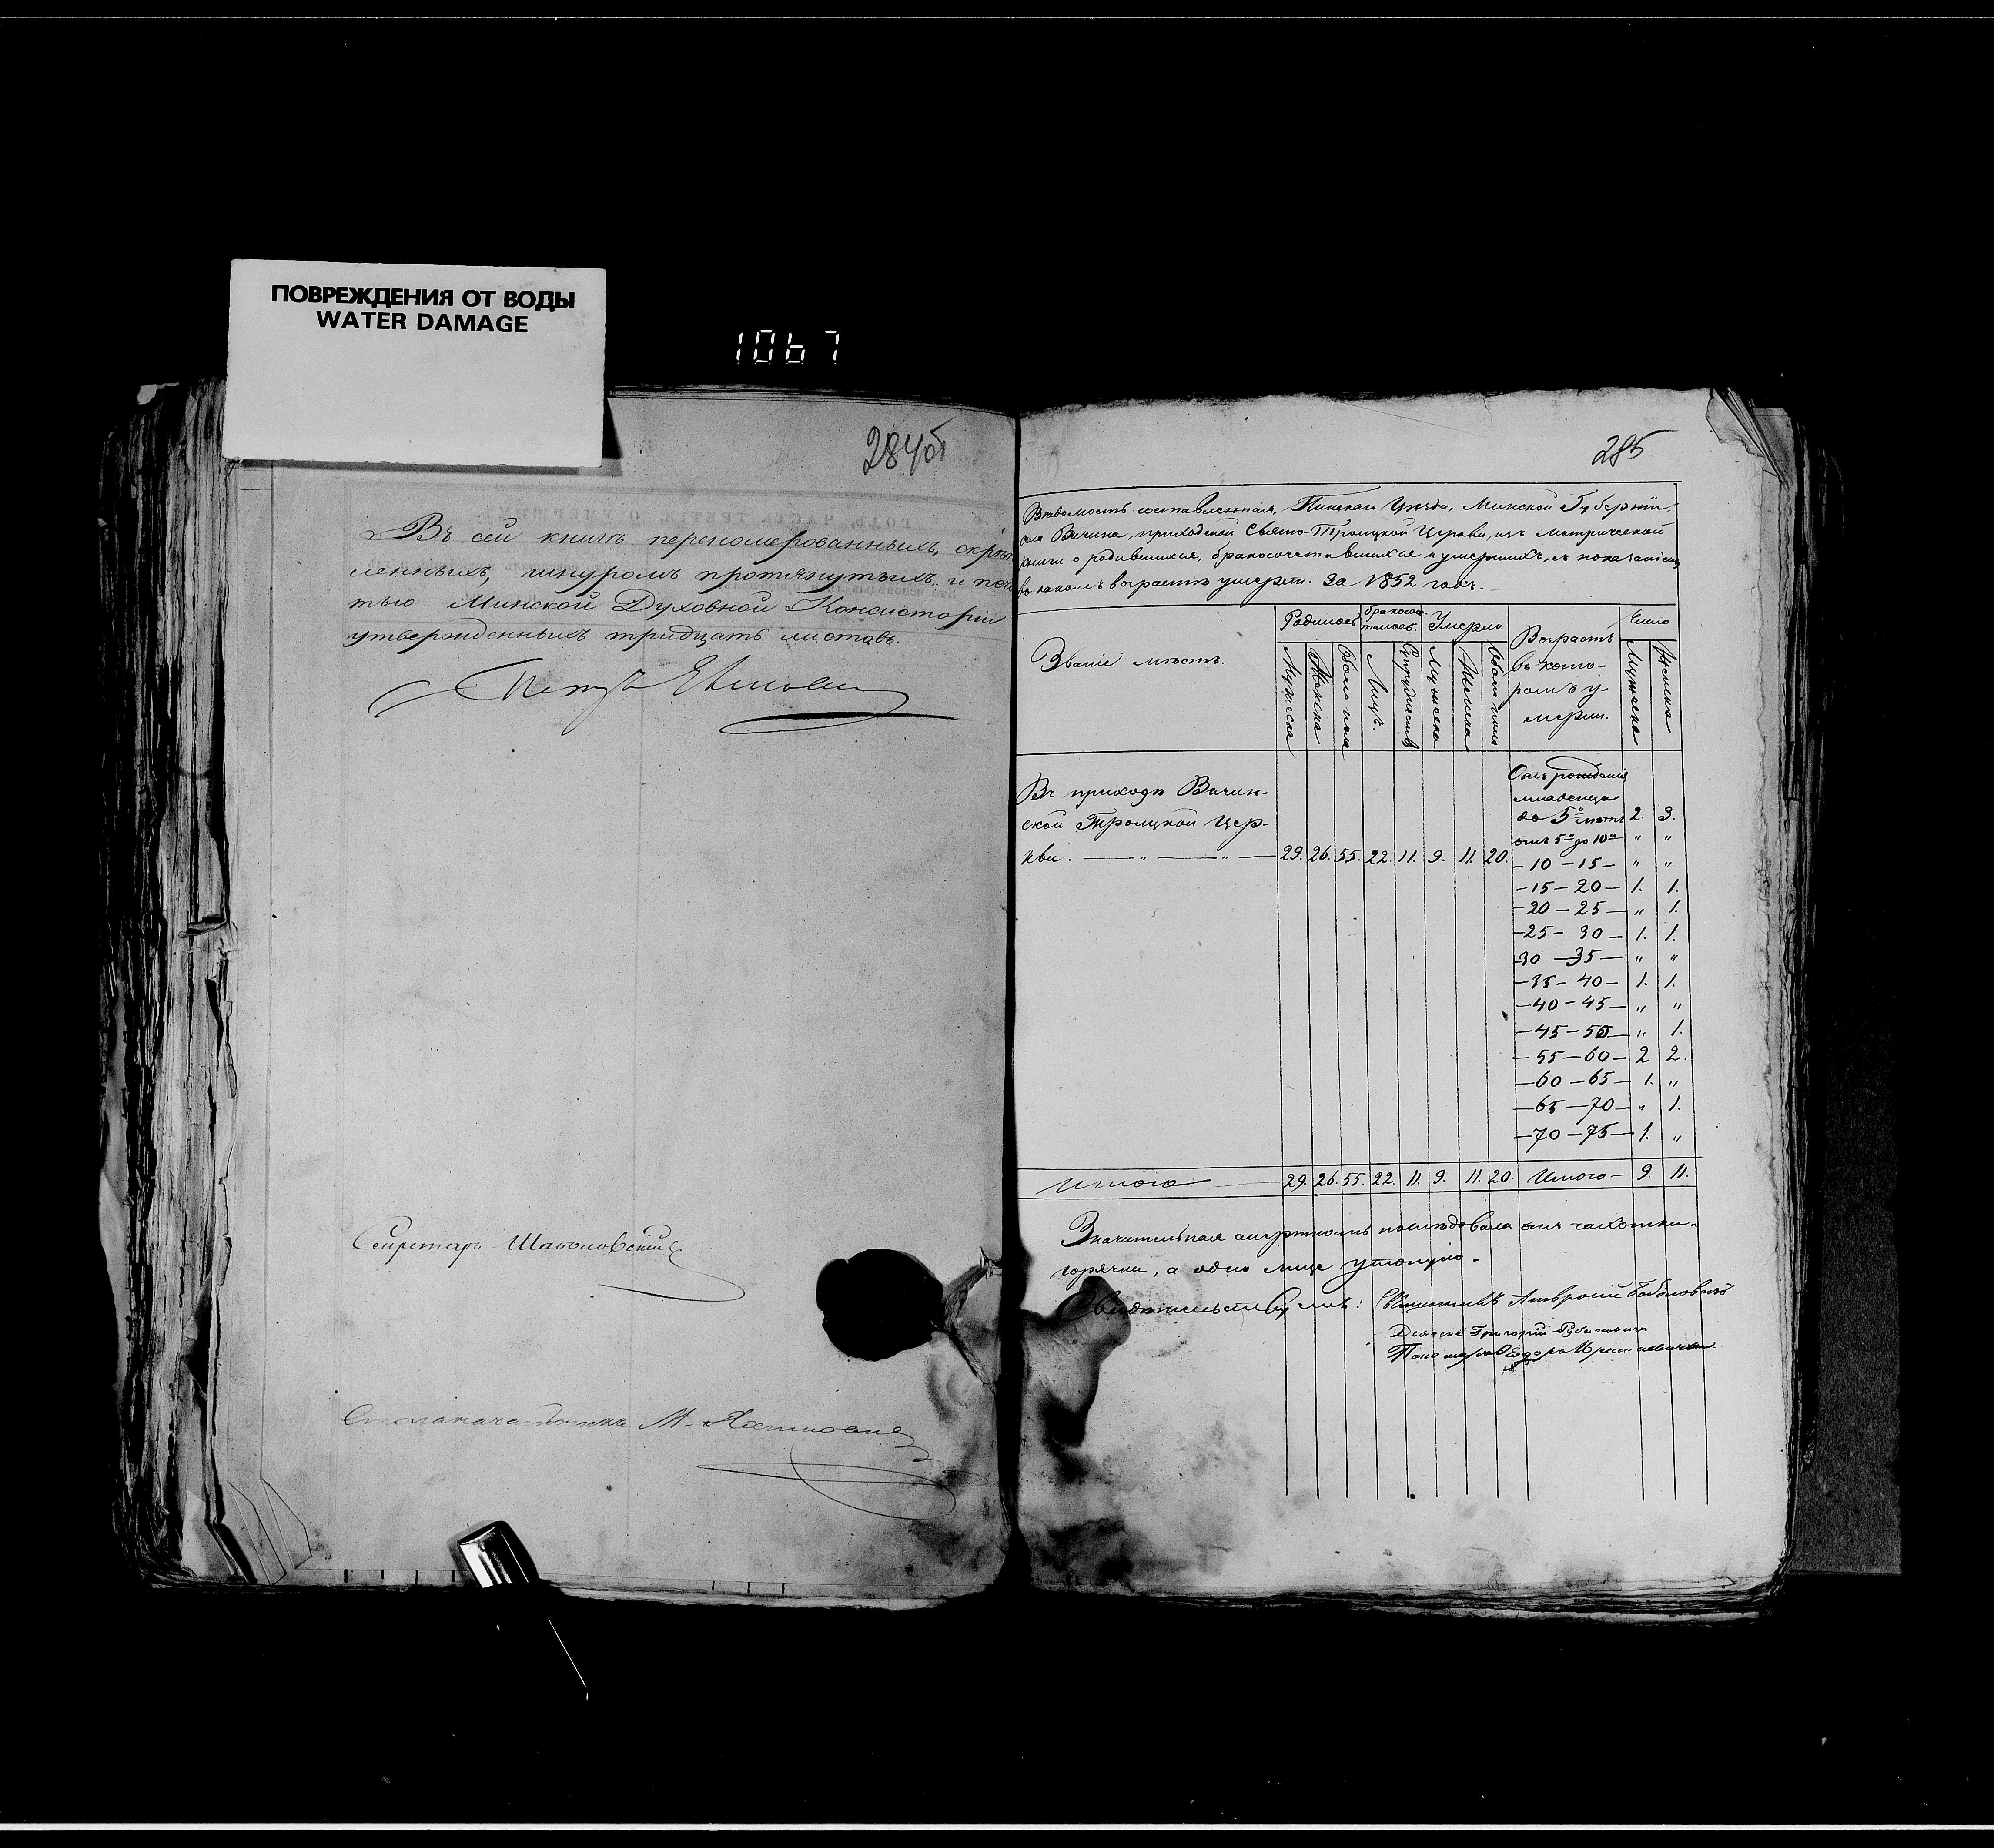 ПОВРЕЖДЕНИЯ ОТ ВОДЫ
WATER DAMAGE
1067
284об
Въ сей книгѣ перепомерованныхъ, скрѣп
ленныхъ, шнуромъ протянутыхъ и печа
тью Минской Духовной Консисторіи
утвержденныхъ тридцать листовъ.
Секретарь
Столоначальникъ М.
285
Вѣдомость составленная, Пинскаго Уѣзда, Минской Губерніи,
села Вичина, приходской Свято-Троицкой Церкви, изъ метрической
книги о родившихся, бракосочетавшихся и умершихъ, съ показаніемъ
въ какомъ возрастѣ умерли. За 1852 годъ.
Званіе мѣстъ.
Родилось
бракосоче-
талось.
Умерло.
Возрастъ
въ кото-
ромъ у-
мерли.
Число
Мужеска
Женска
Обоего пола
Лицъ.
Супружествъ
Мужеска
Женска
Обоего пола
Мужеска
Женска
Въ приходѣ Вичин-
ской Троицкой Цер-
кви. — „ — „ — 29. 26. 55. 22. 11. 9. 11. 20.
Отъ рожденія
младенца
до 5и лѣтъ 2. 3.
отъ 5и до 10и „ „
— 10 — 15 — „ „
— 15 — 20 — 1. 1.
— 20 — 25 — „ 1.
— 25 — 30 — 1. 1.
30 — 35 — „ „
— 35 — 40 — 1. 1.
— 40 — 45 — „ „
— 45 — 50 — „ 1.
— 55 — 60 — 2 2.
— 60 — 65 — 1. „
— 65 — 70 — „ 1.
— 70 — 75 — 1. „
Итого — 29. 26. 55. 22. 11. 9. 11. 20. Итого — 9. 11.
Значительная смертность послѣдовала отъ чахотки
горячки, а одно лице утонуло.
Священникъ Амвросій
Григорій
Пономарь